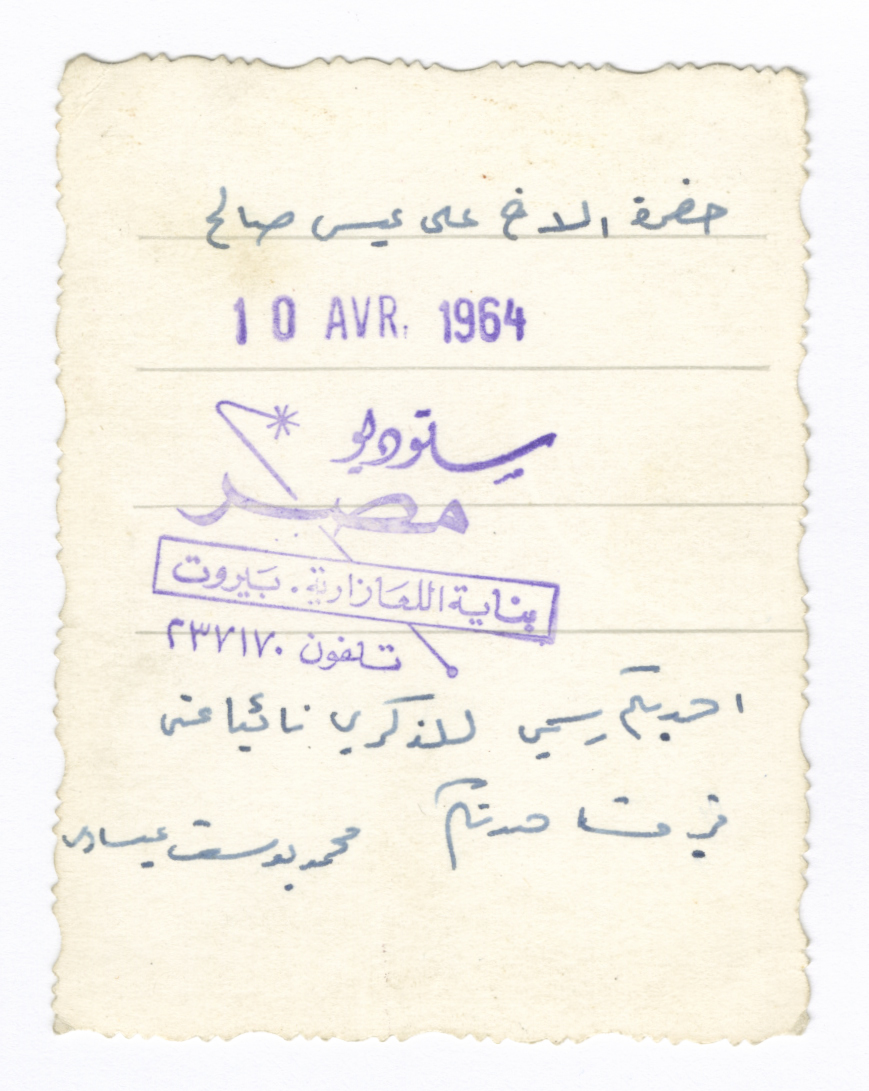 حضرة الاخ علي عيسى صالح
10 AVR. 1964
ستوديو
مصر
بناية اللعازارية . بيروت
تلفون ٢٣٧١٧٠
اهديكم رسمي للذكرى نائبا عني
في مشاهدتكم محمد يوسف عبادي